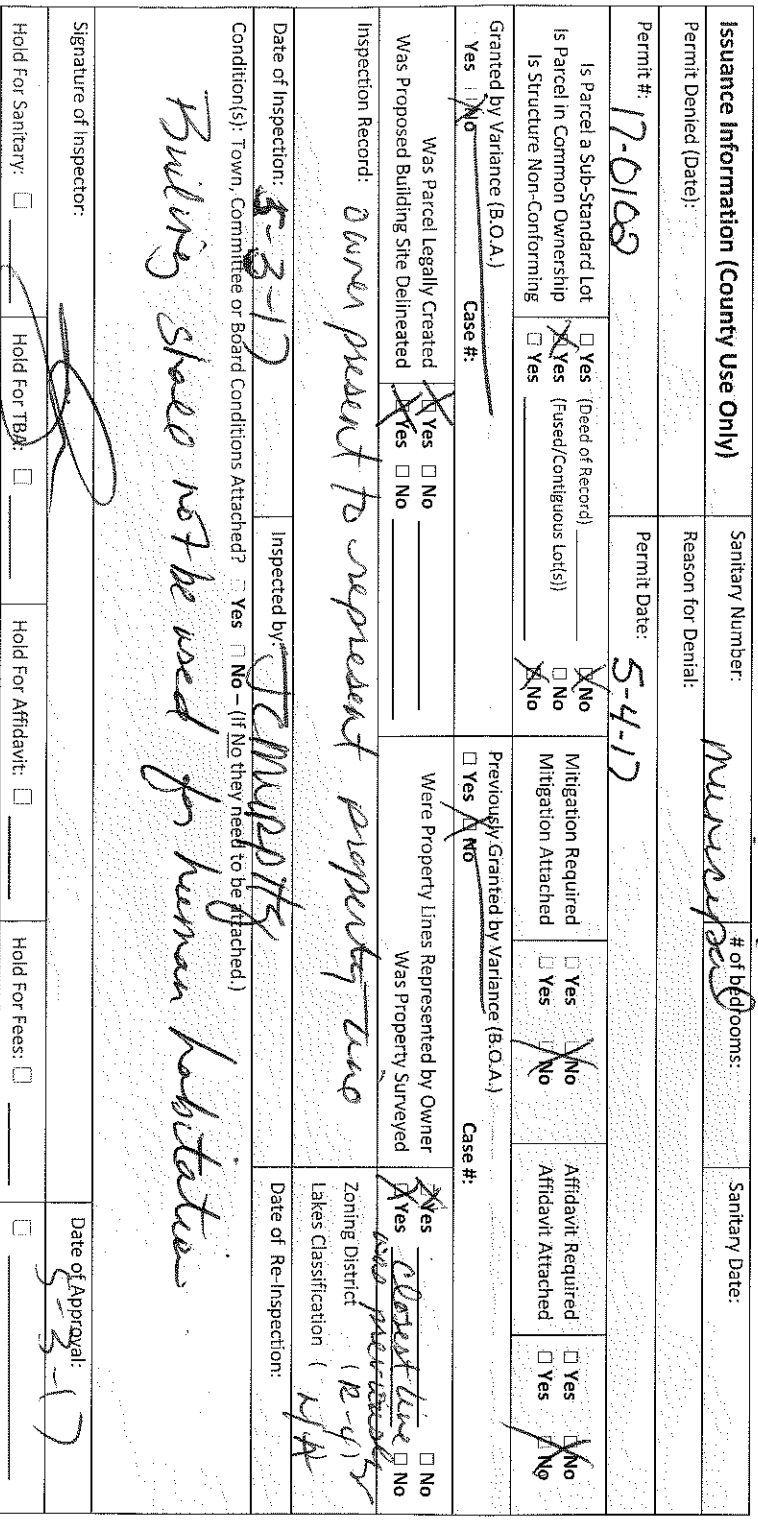 Issuance Information (County Use Only)
Sanitary Number: Municipal
# of bedrooms:
Sanitary Date:
Permit Denied (Date):
Reason for Denial:
Permit #: 17-0100
Permit Date: 5-4-17
Is Parcel a Sub-Standard Lot □ Yes (Deed of Record) ☒ No
Is Parcel in Common Ownership ☒ Yes (Fused/Contiguous Lot(s)) □ No
Is Structure Non-Conforming □ Yes ☒ No
Mitigation Required □ Yes ☒ No
Mitigation Attached □ Yes ☒ No
Affidavit Required □ Yes ☒ No
Affidavit Attached □ Yes ☒ No
Granted by Variance (B.O.A.)
□ Yes ☒ No Case #:
Previously Granted by Variance (B.O.A.)
□ Yes ☒ No Case #:
Was Parcel Legally Created ☒ Yes □ No
Was Proposed Building Site Delineated ☒ Yes □ No
Were Property Lines Represented by Owner ☒ Yes □ No
Was Property Surveyed ☒ Yes closest line □ No
was previously
Inspection Record: owner present to represent property line
Zoning District (R-4)
Lakes Classification ( N/A
Date of Inspection: 5-3-17
Inspected by: JC Murphy
Date of Re-Inspection:
Condition(s): Town, Committee or Board Conditions Attached? □ Yes □ No – (If No they need to be attached.)
Building shall not be used for human habitation.
Signature of Inspector:
Date of Approval:
5-3-17
Hold For Sanitary: □
Hold For TBA: □
Hold For Affidavit: □
Hold For Fees: □
□